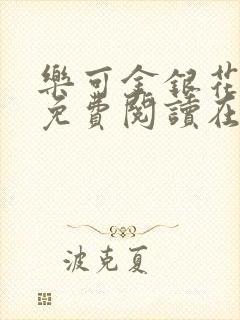 樂可金銀花
免費閱讀在
波克夏